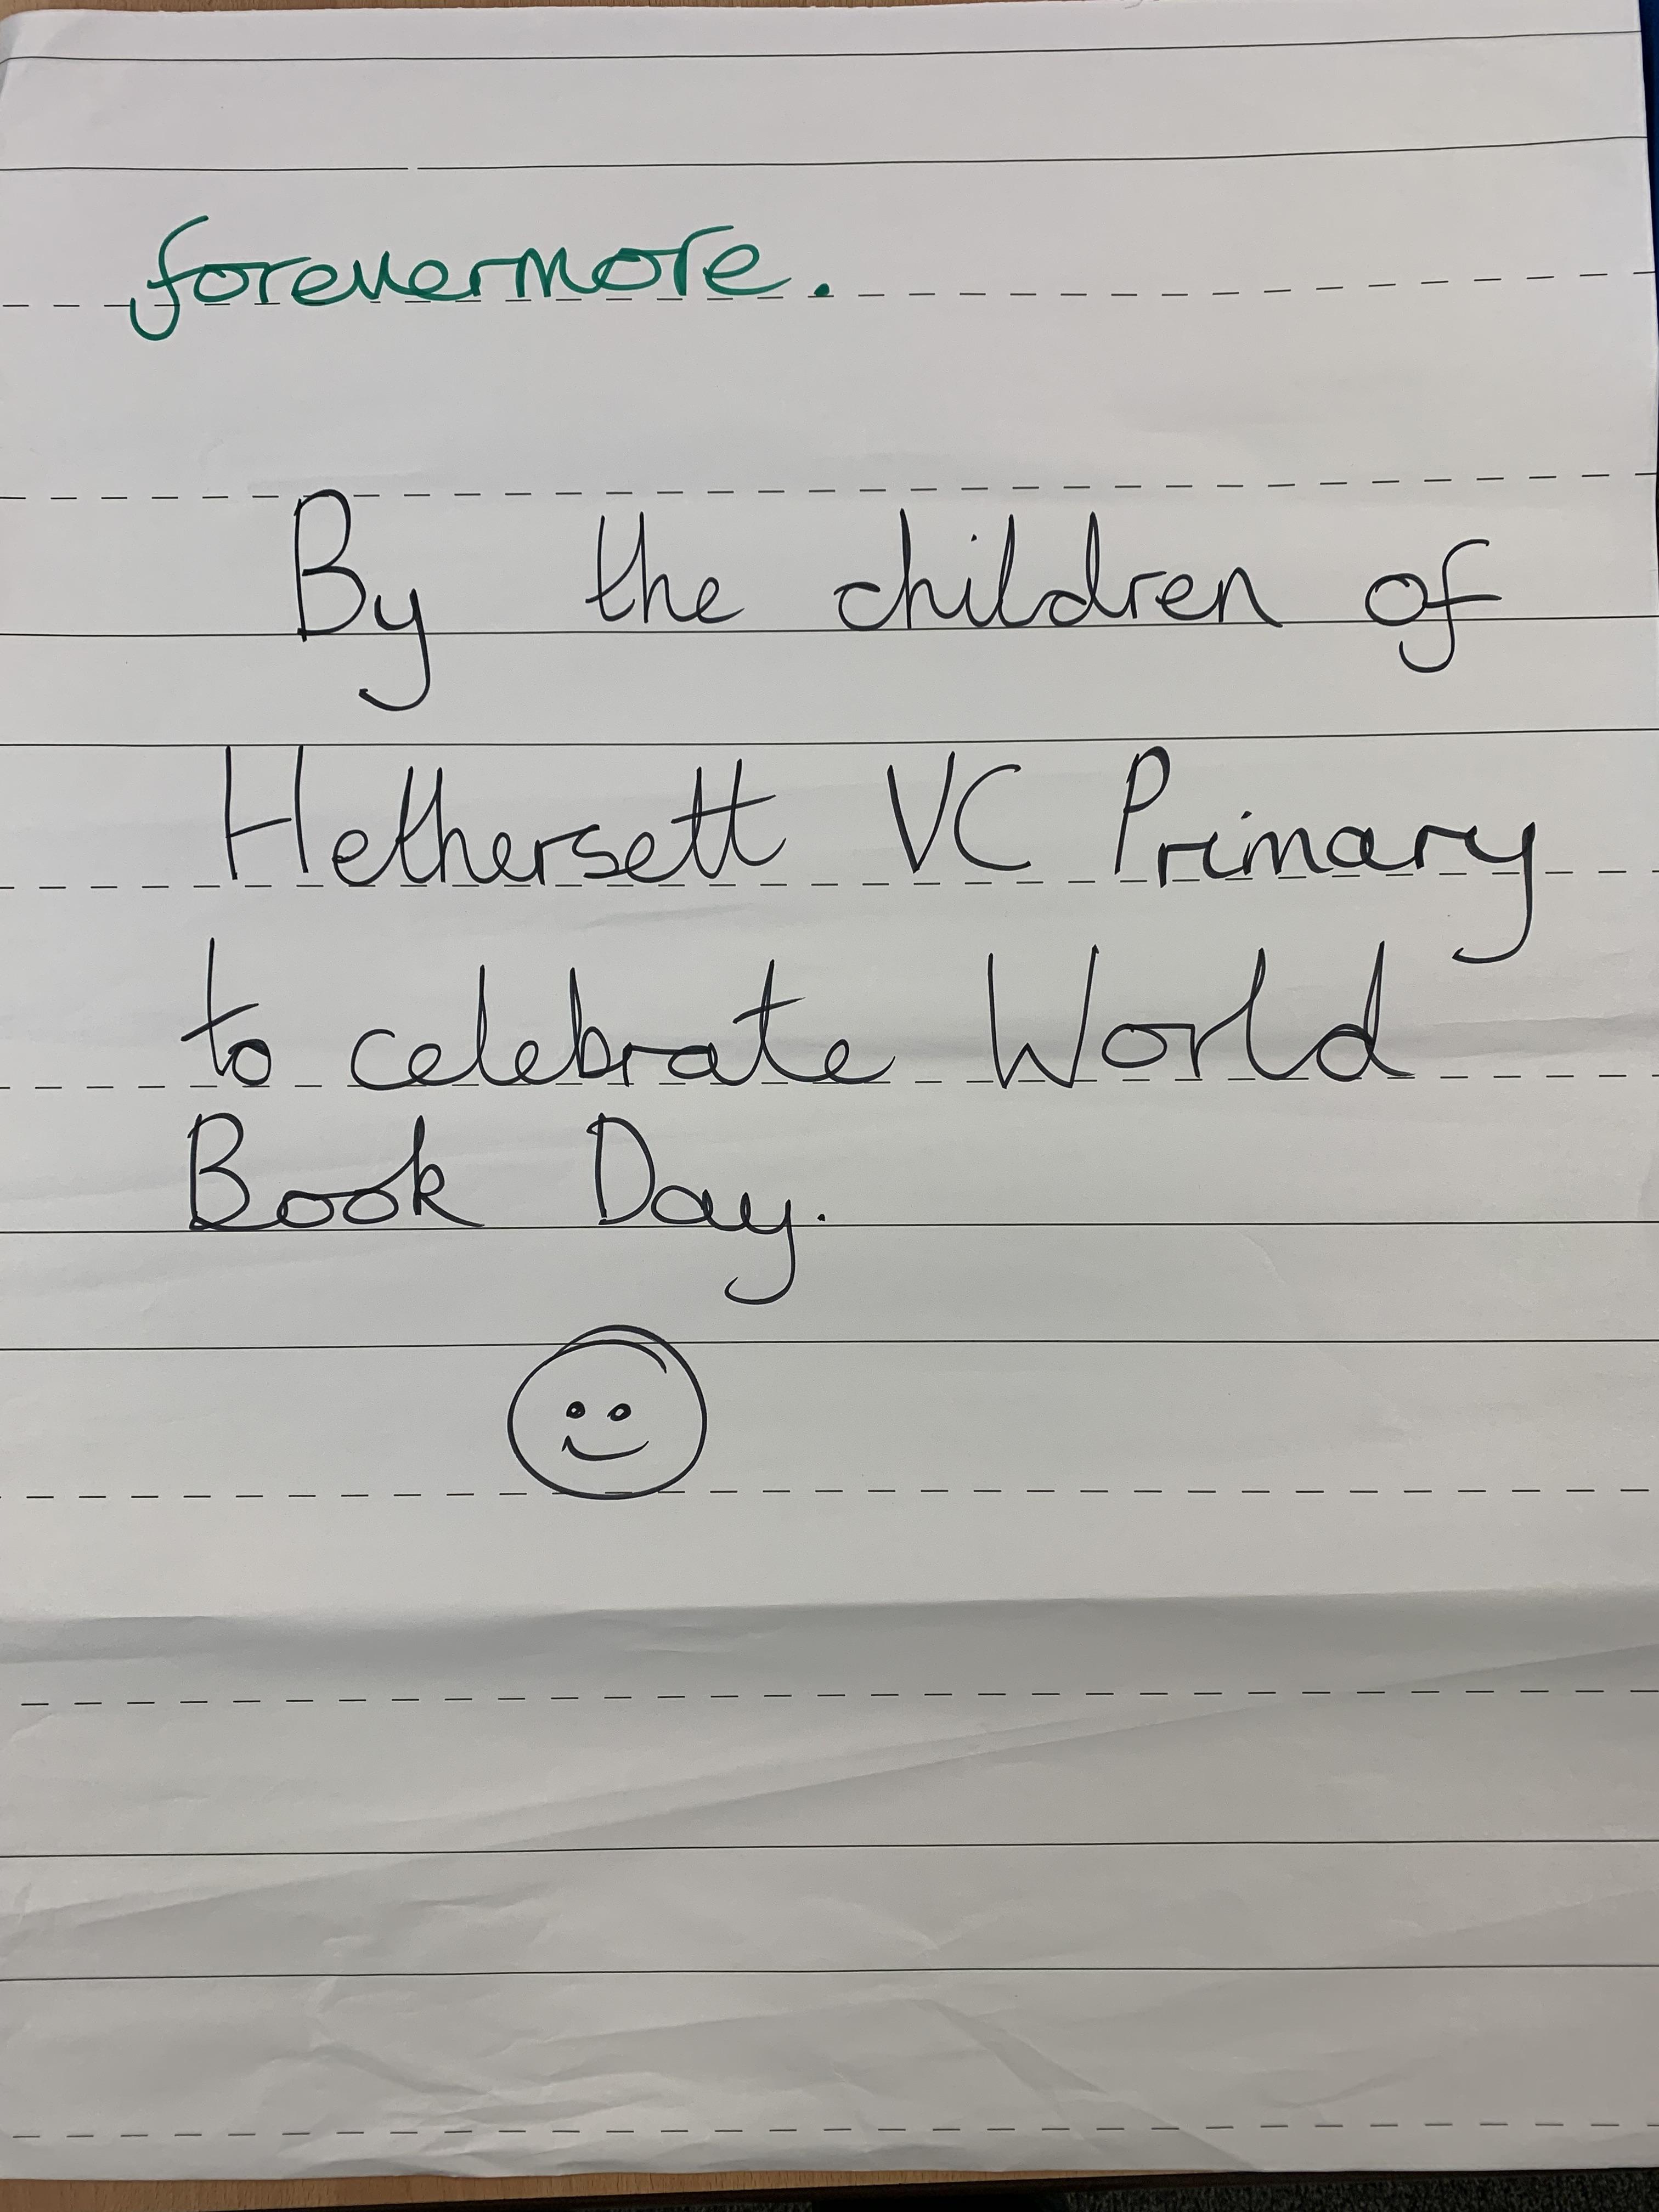 forevermore.
By the children of
Hethersett VC Primary
to celebrate World
Book Day.